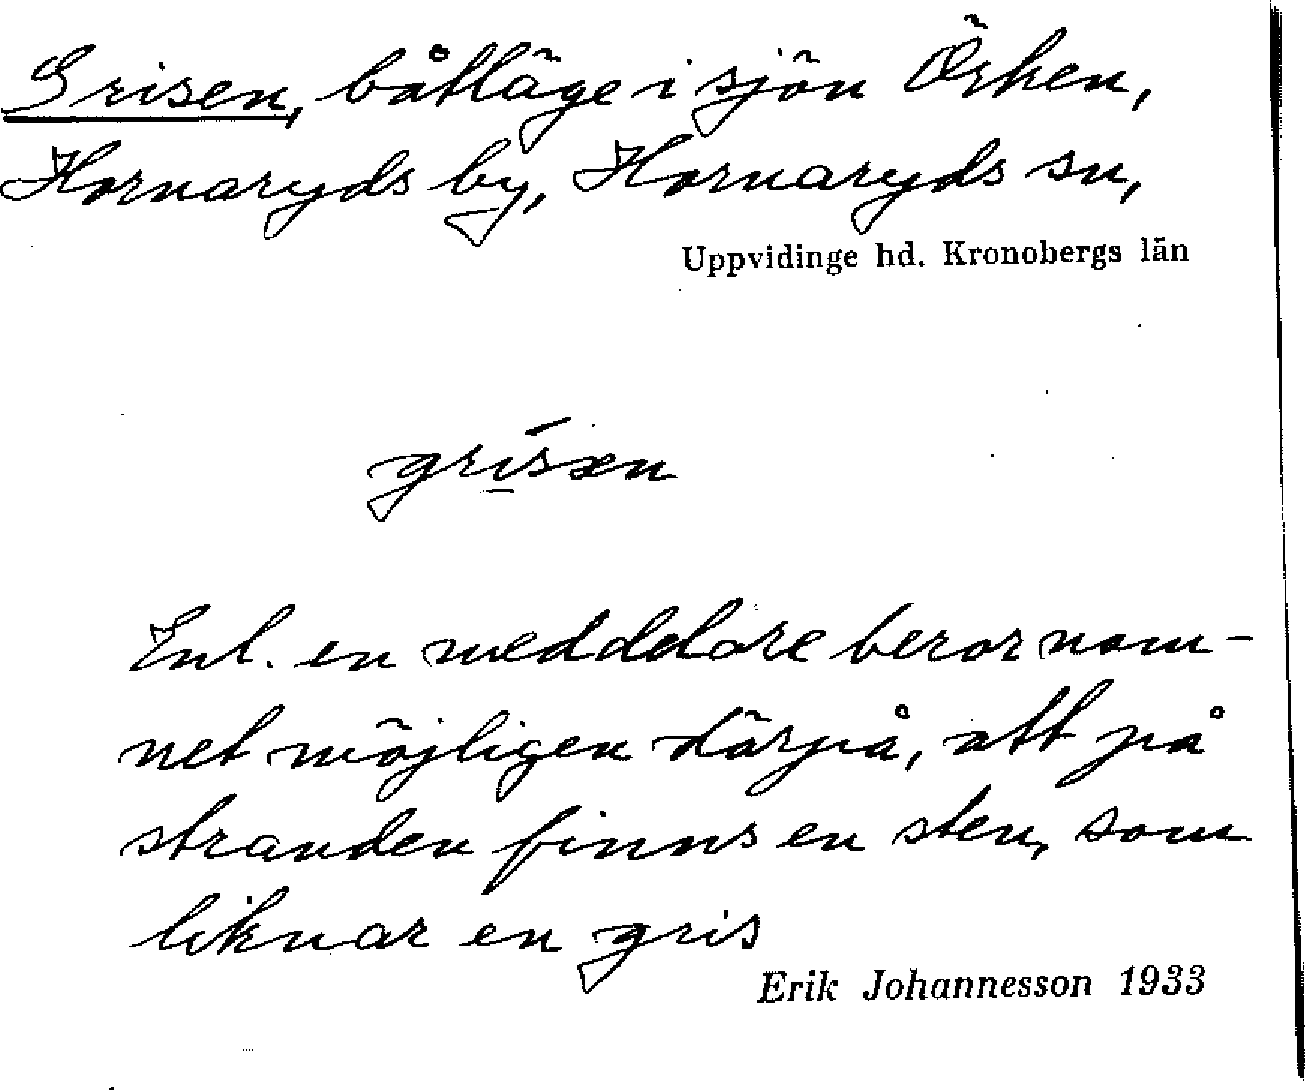 Grisen, båtläge i sjön Örken,
Hornaryds by, Hornaryds sn,
Uppvidinge hd. Kronobergs län
grísæn
Enl. en meddelare beror nam-
net möjligen därpå, att på
stranden finns en sten, som
liknar en gris
Erik Johannesson 1933